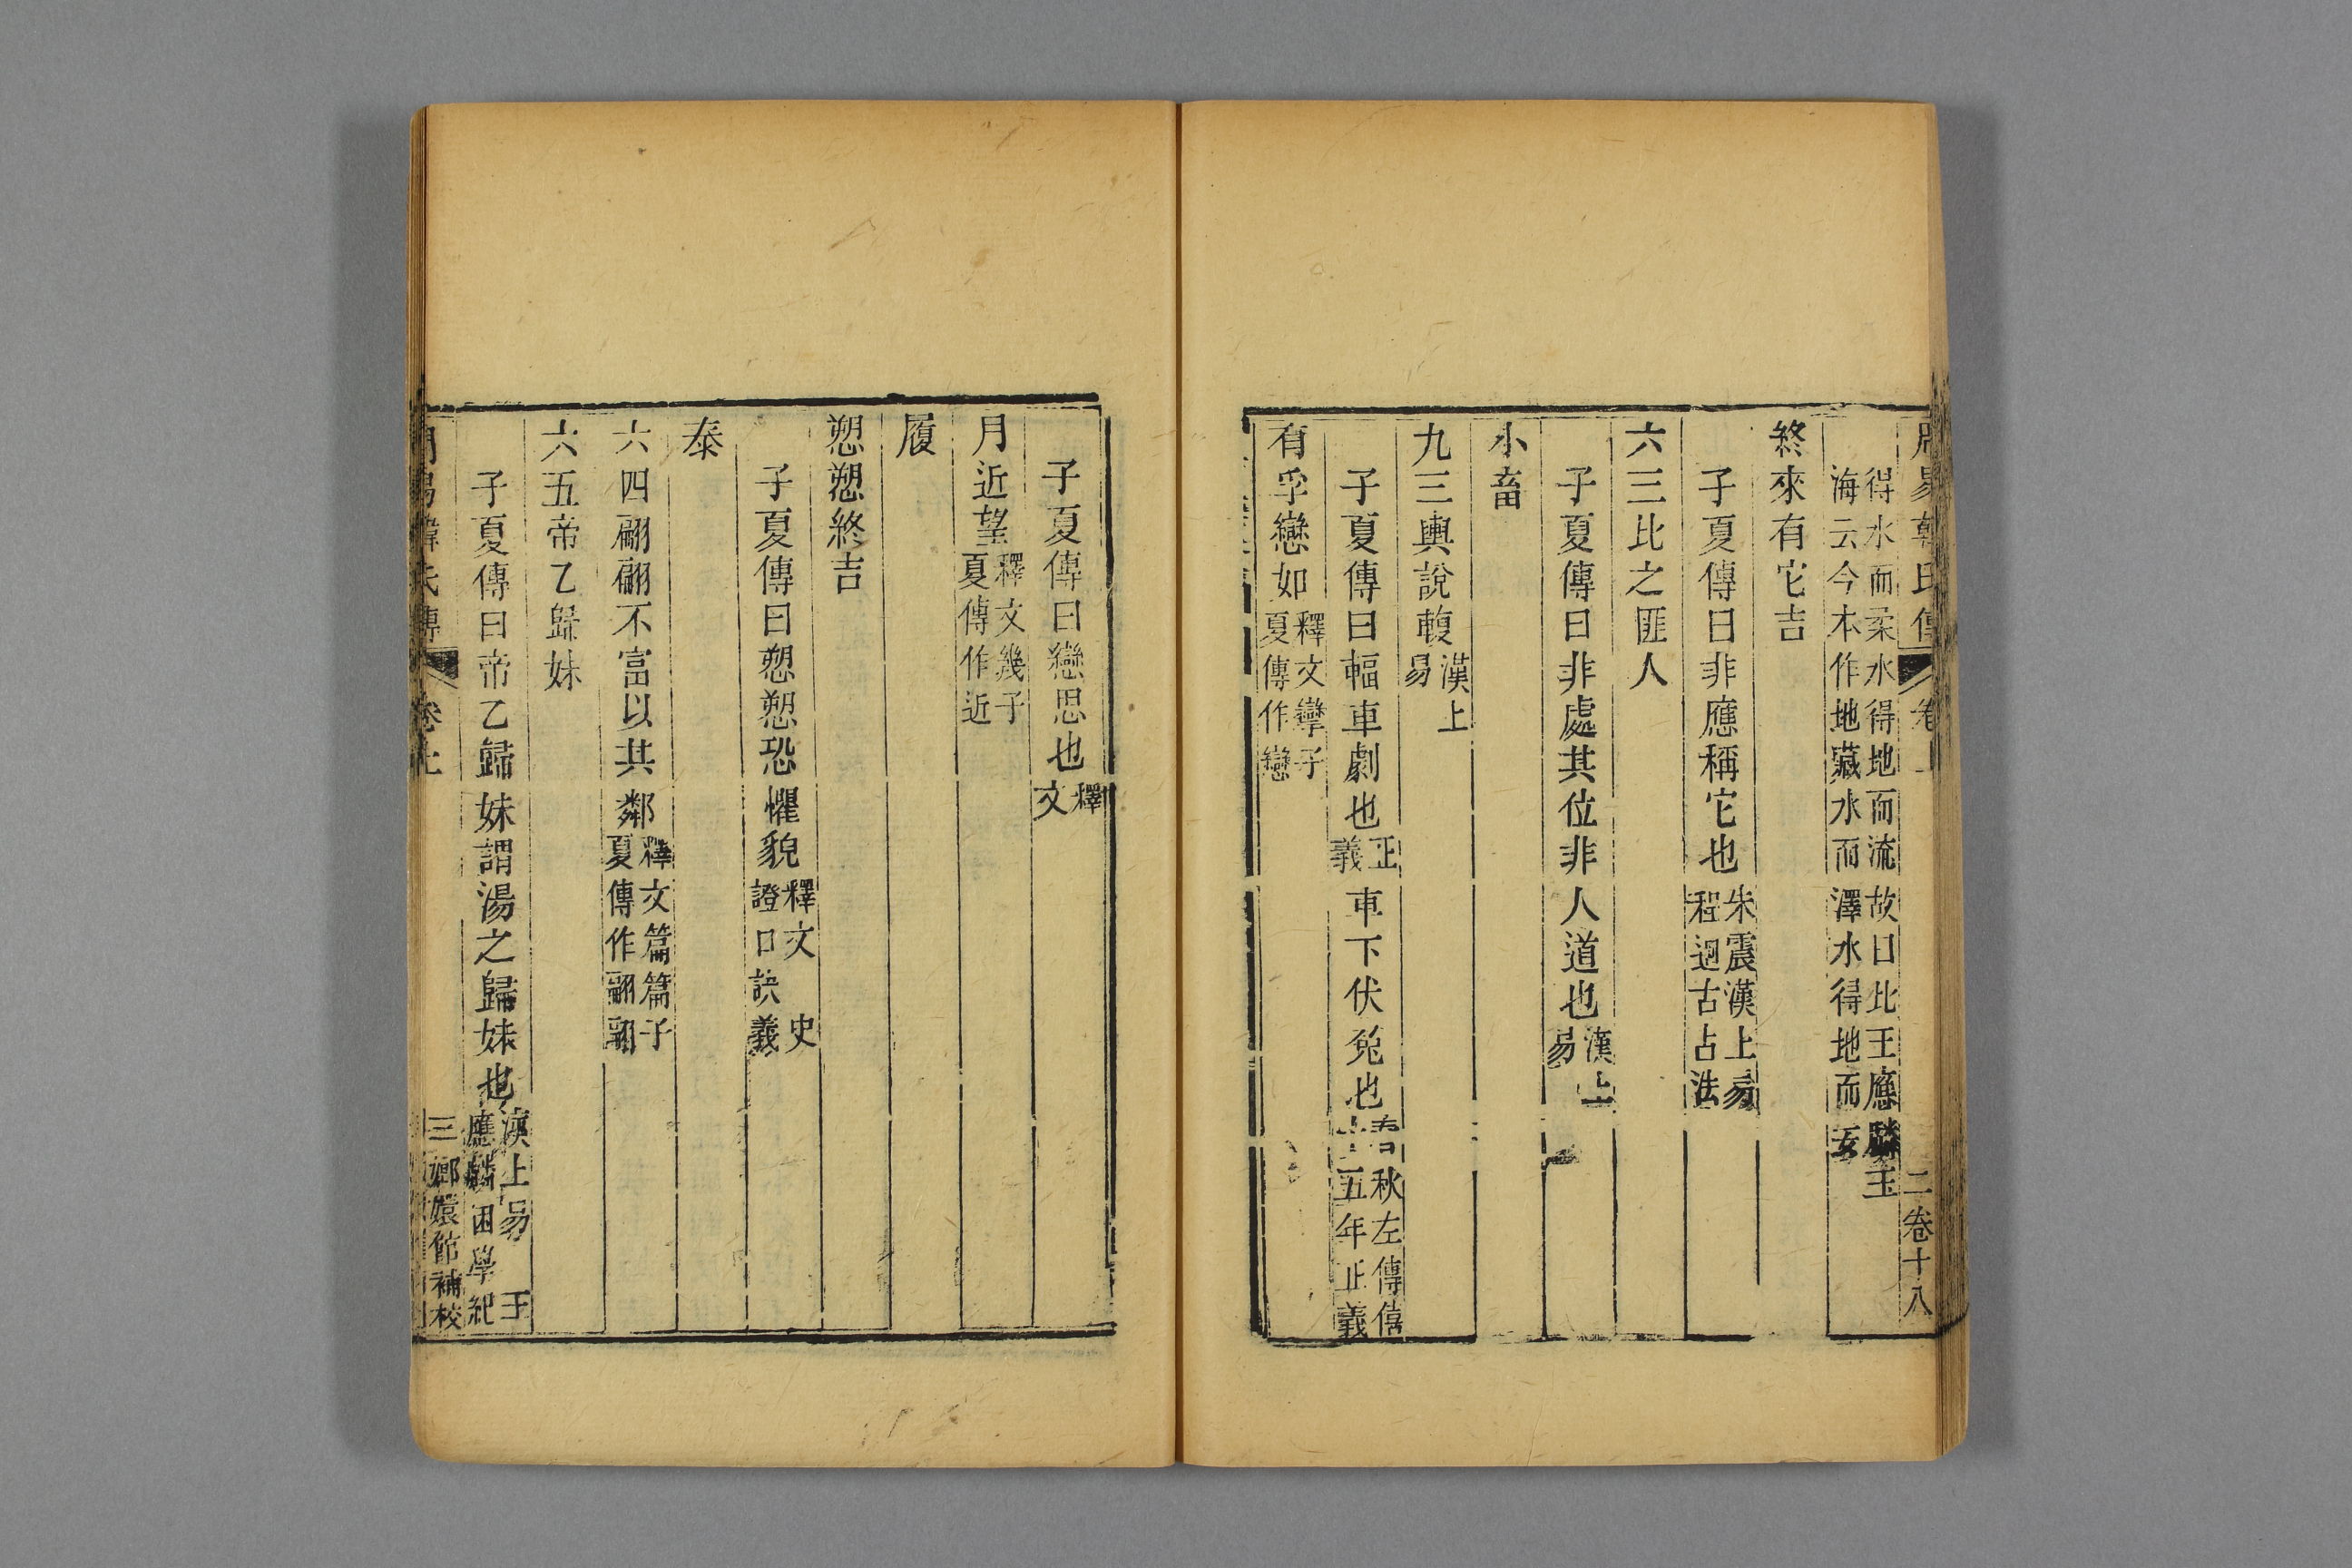 周易韓氏傳 卷上 二 卷十八
得水而柔水得地而流故曰比王應麟玉
海云今本作地藏水而澤水得地而安
終來有它吉
子夏傳曰非應稱它也朱震漢上易
程迥古占法
六三比之匪人
子夏傳曰非處其位非人道也漢上
易
小畜
九三輿說輹漢上
易
子夏傳曰輻車劇也正
義車下伏兔也春秋左傳僖
十五年正義
有孚戀如釋文攣子
夏傳作戀
子夏傳曰戀思也釋
文
月近望釋文幾子
夏傳作近
履
愬愬終吉
子夏傳曰愬愬恐懼貌釋文 史
證口訣義
泰
六四翩翩不富以其鄰釋文篇篇子
夏傳作翩翩
六五帝乙歸妹
子夏傳曰帝乙歸妹謂湯之歸妹也漢上易 王
應麟困學紀
周易韓氏傳 卷上 三 嫏嬛館補校